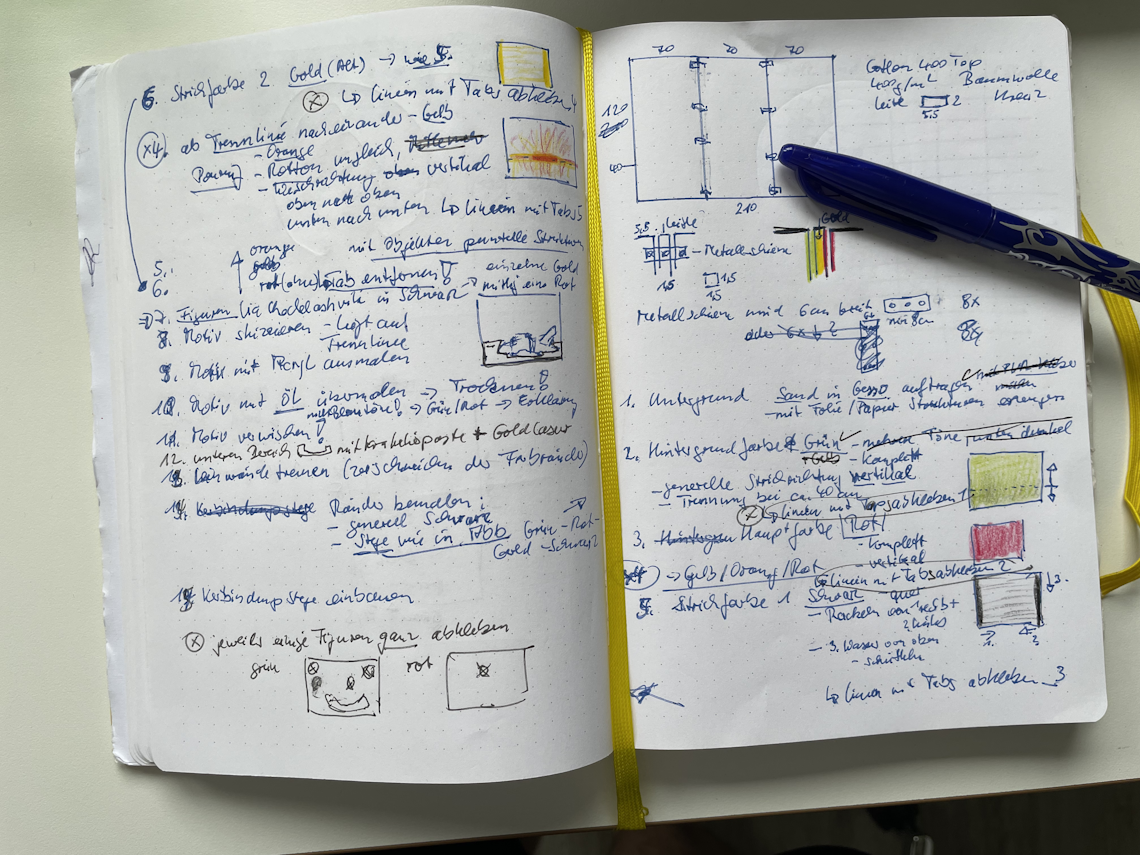 6. Strichfarbe 2 Gold (Alt) → wie 5.
ⓧ ↳ Linien mit Tabs abkleben 4
x4. ab Trennlinie nacheinander - Gelb
- Orange
- Rotton ungleich,
- Wischrichtung oben vertikal
oben nach oben
unten nach unten ↳ Linien mit Tabs 5
mit Objekten punktuelle Strukturen
orange
gelb
rot
5.
6. Tab entfernen!
einzelne Gold
mittig eine Rot
⇒ 7. Figuren via in Schwarz
8. Motiv skizzieren - liegt auf
Trennlinie
9. Motiv mit Acryl ausmalen
10. Motiv mit Öl übermalen → Trocknen!
→ Grün/Rot →
11. Motiv verwischen!
12. unteren Bereich mit Krakeliopaste + Goldlasur
13. Leinwände trennen (zerschneiden der Farbränder)
14. Verbindungsstege Ränder bemalen:
- generell Schwarz
- Stege wie in Abb Grün - Rot -
Gold - Schwarz
15. Verbindungsstege einbauen
ⓧ jeweils einige Figuren ganz abkleben
grün rot
70 70 70
120
40
210
Cotton 400 Top
400 g/m² Baumwolle
Leiste 2
5,5
5,5 Leiste
- Metallschiene
1,5
1,5
1,5
Gold
Metallschiene mind 6 cm breit 8x
oder 6x
1. Untergrund Sand in Gesso auftragen
- mit Folie/Papier Strukturen erzeugen
2. Hintergrundfarbe Grün ✓ - mehrere Töne unten dunkel
+ Gelb - komplett
- generelle Strichrichtung vertikal
- Trennung bei ca. 40 cm
ⓧ ↳ Linien mit Tabs abkleben 1
3. Hintergrun Hauptfarbe Rot
- komplett
- vertikal
→ Gelb/Orang/Rot
↳ Linien mit Tabs abkleben 2
5. Strichfarbe 1 Schwarz - quer
- Rackeln von
- 3. Wasser von oben
- schütteln
3.
1. 2.
↳ Linien mit Tabs abkleben 3